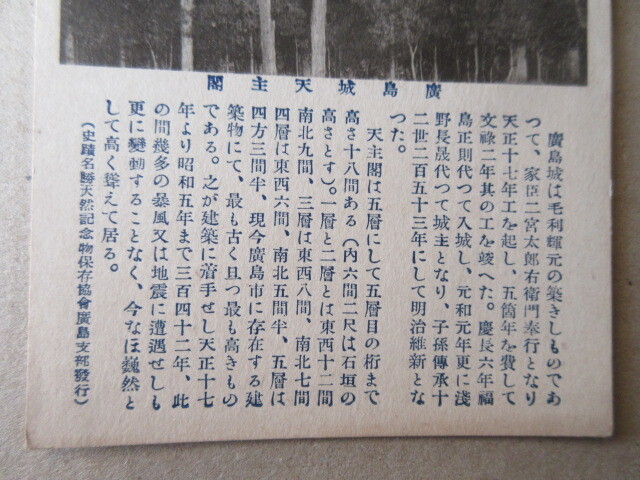 廣島城天主閣
廣島城は毛利輝元の築きしものであ
つて、家臣二宮太郎右衛門奉行となり
天正十七年工を起し、五箇年を費して
文祿二年其の工を竣へた。慶長六年福
島正則代つて入城し、元和元年更に淺
野長晟代つて城主となり、子孫傳承十
二世二百五十三年にして明治維新とな
つた。
天主閣は五層にして五層目の桁まで
高さ十八間ある（内六間二尺は石垣の
高さとす）。一層と二層とは東西十二間
南北九間、三層は東西八間、南北七間
四層は東西六間、南北五間半、五層は
四方三間半、現今廣島市に存在する建
築物にて、最も古く且つ最も高きもの
である。之が建築に着手せし天正十七
年より昭和五年まで三百四十二年、此
の間幾多の暴風又は地震に遭遇せしも
更に變動することなく、今なほ巍然と
して高く聳えて居る。
（史蹟名勝天然記念物保存協會廣島支部發行）